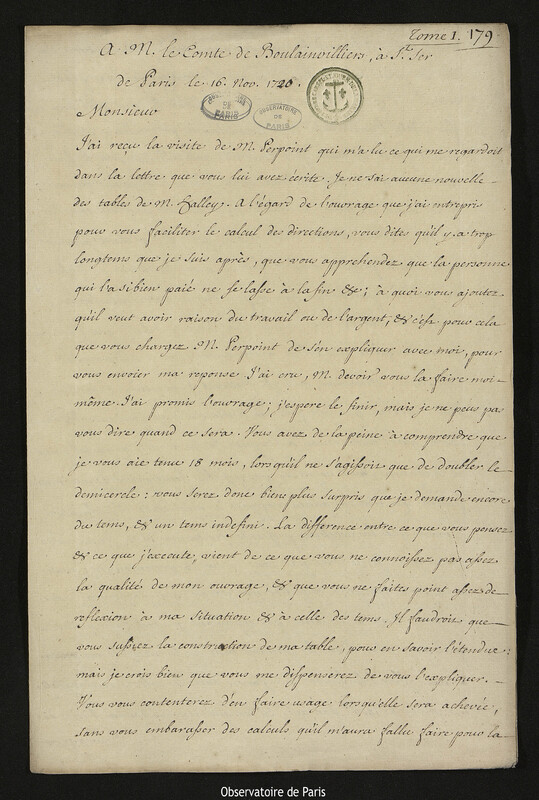 Tome 1. 179
A M. le Comte de Boulainvilliers, à St. Ser
de Paris le 16. Nov. 1720.
OBSERVATOIRE DE PARIS
Monsieur
J'ai reçu la visite de M. Perpoint qui m'a lu ce qui me regardoit
dans la lettre que vous lui avez écrite. Je ne sai aucune nouvelle
des tables de M. Halley. A l'égard de l'ouvrage que j'ai entrepris
pour vous faciliter le calcul des directions, vous dites qu'il y a trop
longtems que je suis après, que vous apprehendez que la personne
qui l'a si bien paié ne se lasse à la fin &c; à quoi vous ajoutez
qu'il veut avoir raison du travail ou de l'argent; & c'est pour cela
que vous chargez M. Perpoint de s'en expliquer avec moi, pour
vous envoier ma reponse. J'ai cru, M. devoir vous la faire moi-
même. J'ai promis l'ouvrage; j'espere le finir, mais je ne peus pas
vous dire quand ce sera. Vous avez de la peine à comprendre que
je vous aie tenu 18 mois, lorsqu'il ne s'agissoit que de doubler le
demicercle: vous serez donc bien plus surpris que je demande encore
du tems, & un tems indefini. La difference entre ce que vous pensez
& ce que j'execute, vient de ce que vous ne connoissez pas assez
la qualité de mon ouvrage, & que vous ne faites point assez de
reflexion à ma situation & à celle des tems. Il faudroit que
vous sussiez la construction de ma table, pour en savoir l'étendue:
mais je crois bien que vous me dispenserez de vous l'expliquer.
Vous vous contenterez d'en faire usage lorsqu'elle sera achevée,
sans vous embarasser des calculs qu'il m'aura fallu faire pour la
Observatoire de Paris